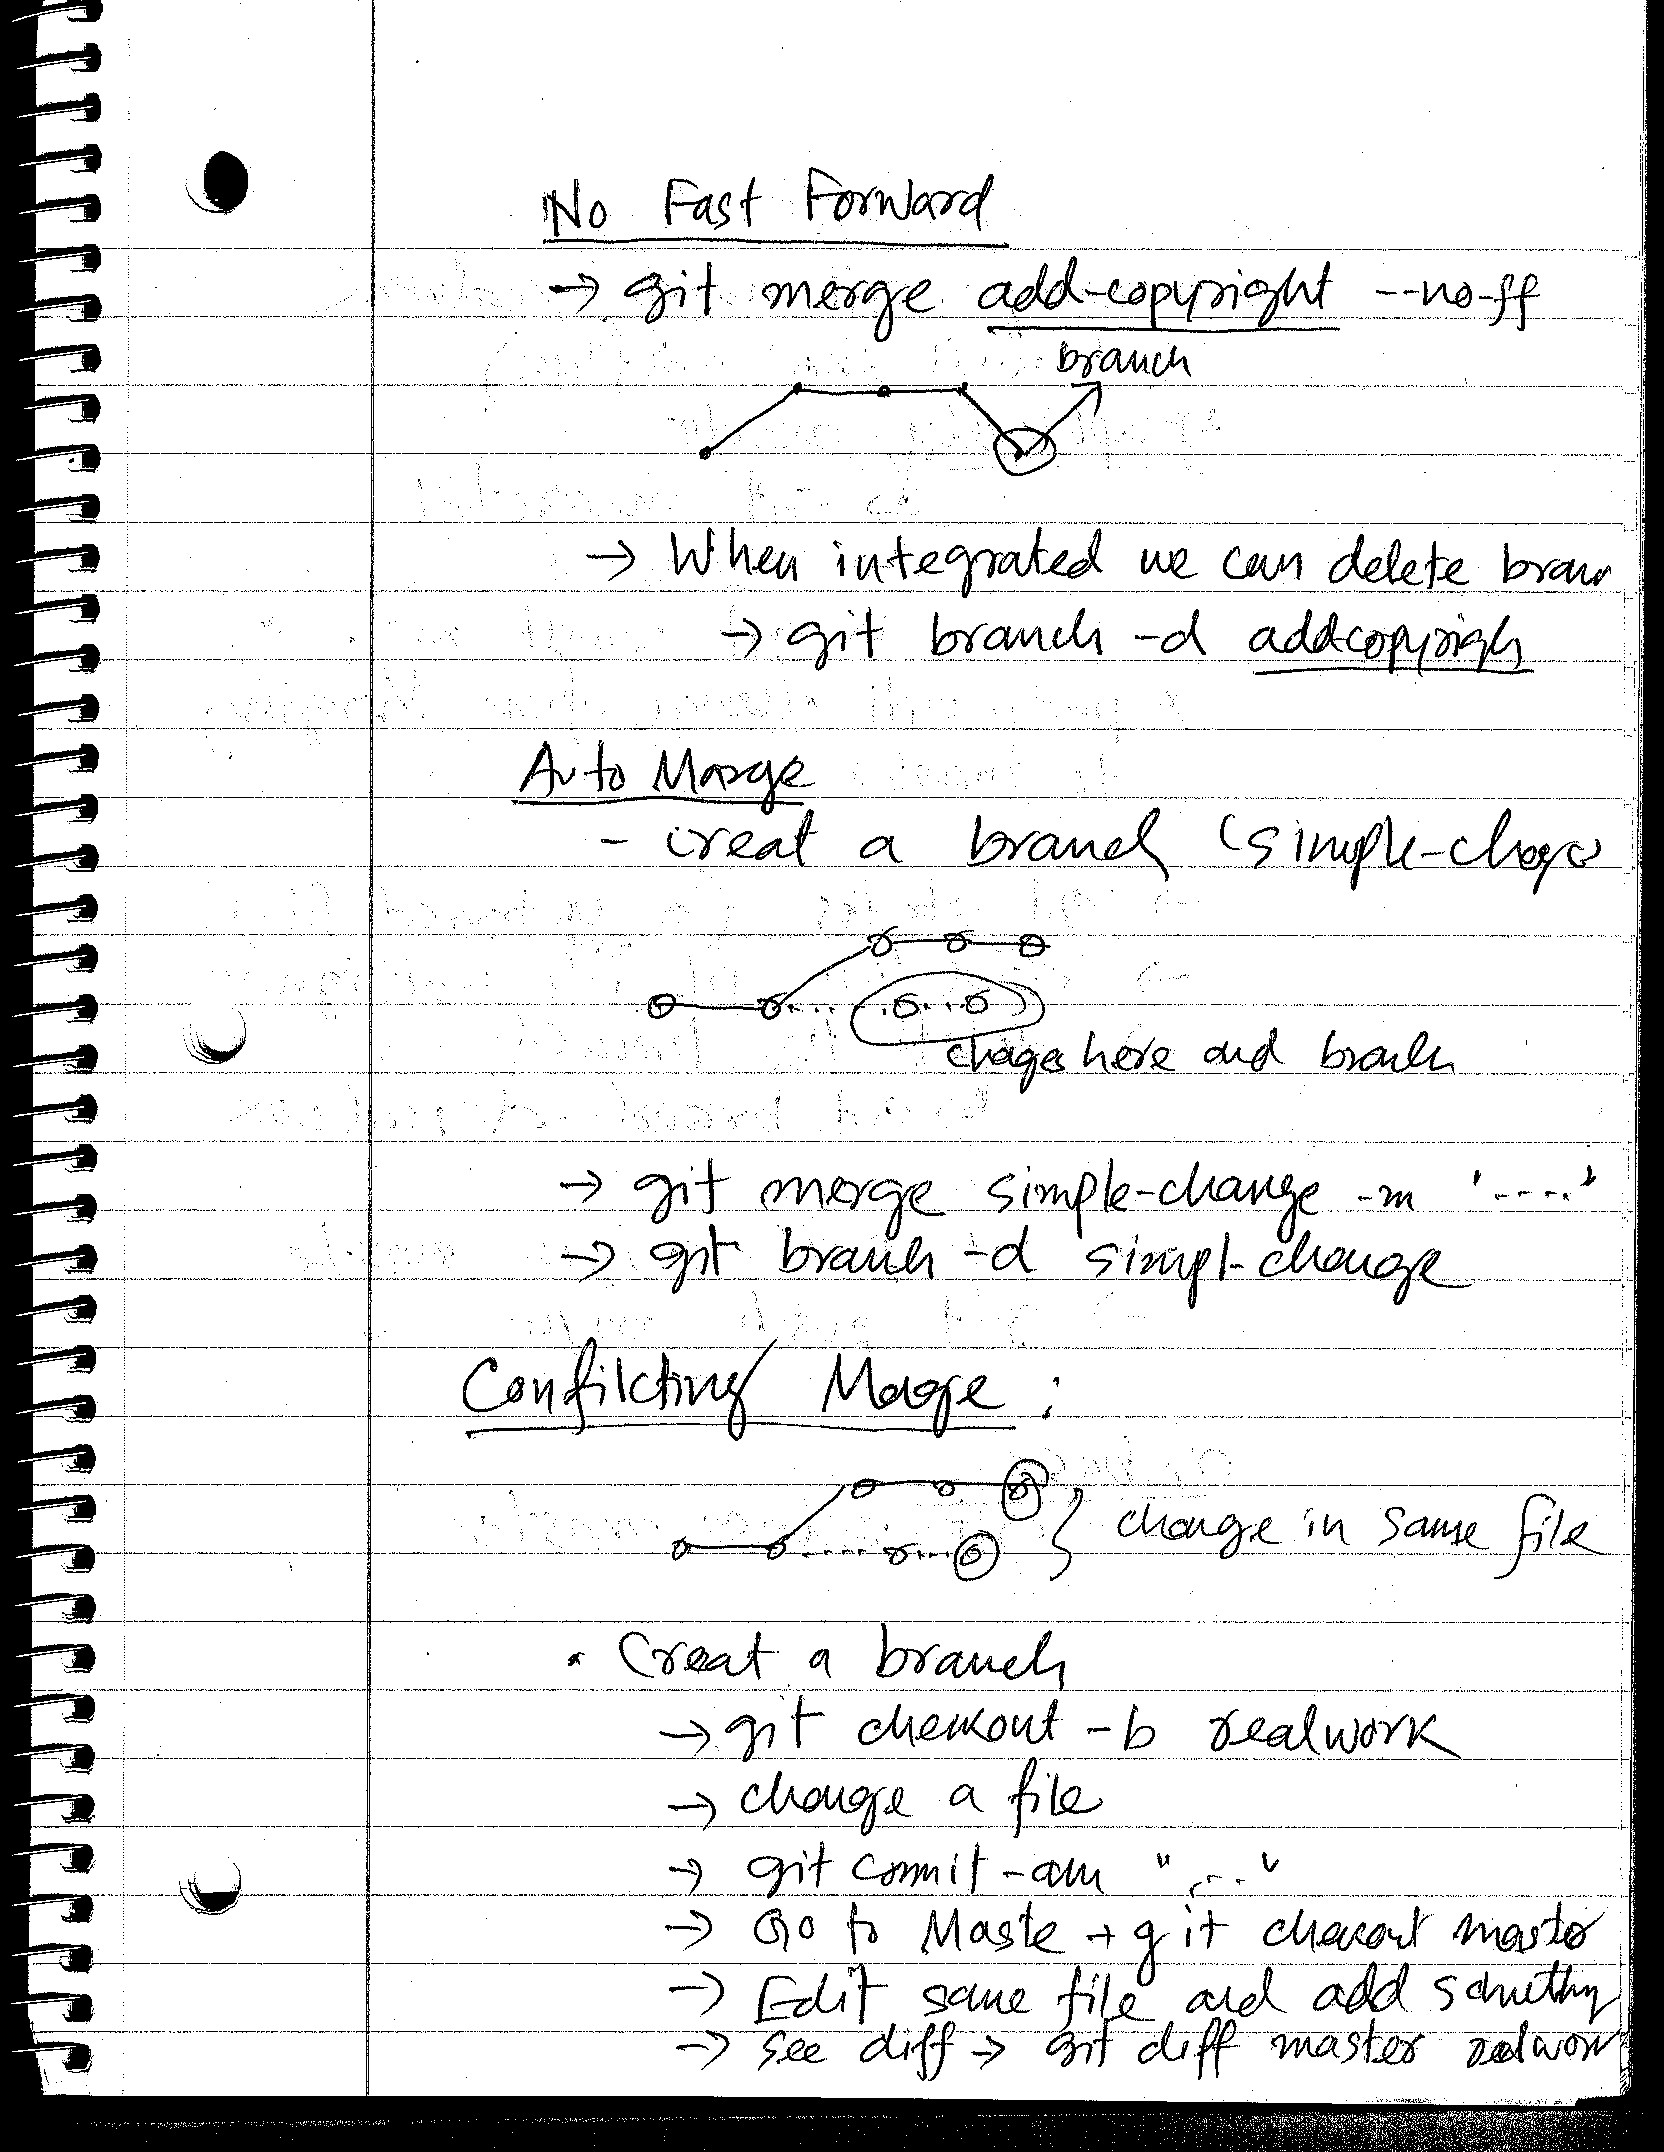 No Fast Forward
→ git merge add-copyright --no-ff
branch
→ When integrated we can delete bran
→ git branch -d addcopyrigh
Auto Marge
- creat a branch (simple-chage
chages here and branch
→ git merge simple-change -m '----'
→ git branh -d simpl-change
Confilcting Marge :
change in same file
• Creat a branch
→ git checkout -b realwork
→ change a file
→ git commit -am "...."
→ Go to Maste → git checkout master
→ Edit same file and add somethng
→ see diff → git diff master realwork